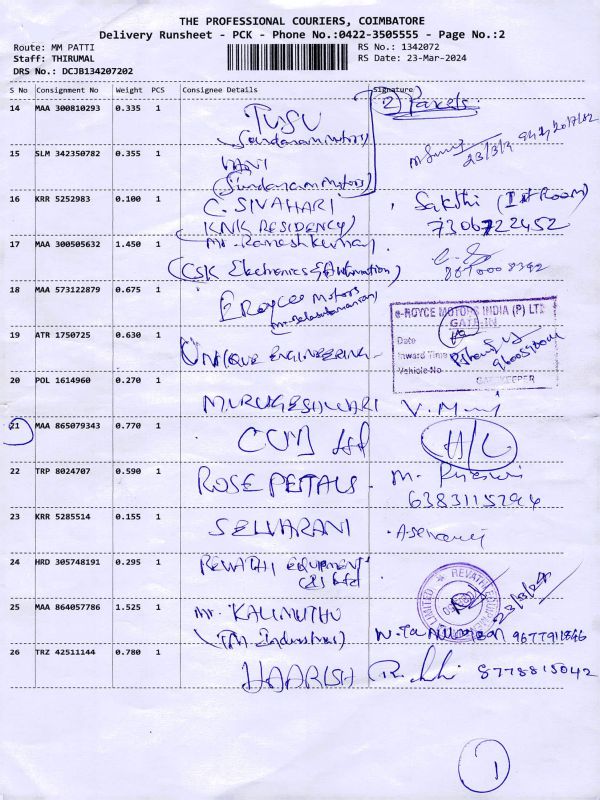 THE PROFESSIONAL COURIERS, COIMBATORE
Delivery Runsheet - PCK - Phone No.:0422-3505555 - Page No.:2
Route: MM PATTI
RS No.: 1342072
Staff: THIRUMAL
RS Date: 23-Mar-2024
DRS No.: DCJB134207202
S No Consignment No Weight PCS Consignee Details Signature
14 MAA 300810293 0.335 1
(Sundaram Motors)
2 Parcels
15 SLM 342350782 0.355 1
(Sundaram Motors)
23/3/
16 KRR 5252983 0.100 1 C. SIVAHARI Sakthi (Ist Room)
(KNK RESIDENCY) 7306722452
17 MAA 300505632 1.450 1 Mr. Rameshkumar
(CSK Electronics & Automation)
18 MAA 573122879 0.675 1 E Royce Motors
e-ROYCE MOTORS INDIA (P) LTD
GATE-IN
Date
Inward Time
Vehicle No
GATEKEEPER
19 ATR 1750725 0.630 1 UNIQUE ENGINEERING
20 POL 1614960 0.270 1 MURUGESHWARI
21 MAA 865079343 0.770 1 CUM H/L
22 TRP 8024707 0.590 1 ROSE PETALS
6383115294
23 KRR 5285514 0.155 1 SELVARANI
24 HRD 305748191 0.295 1 REVATHI EQUIPMENT
REVATHI EQUIPMENT LIMITED
23/3/24
25 MAA 864057786 1.525 1 Mr. KALIMUTHU
(TM Industries) 9677911846
26 TRZ 42511144 0.780 1 HAARISH 8778815042
1